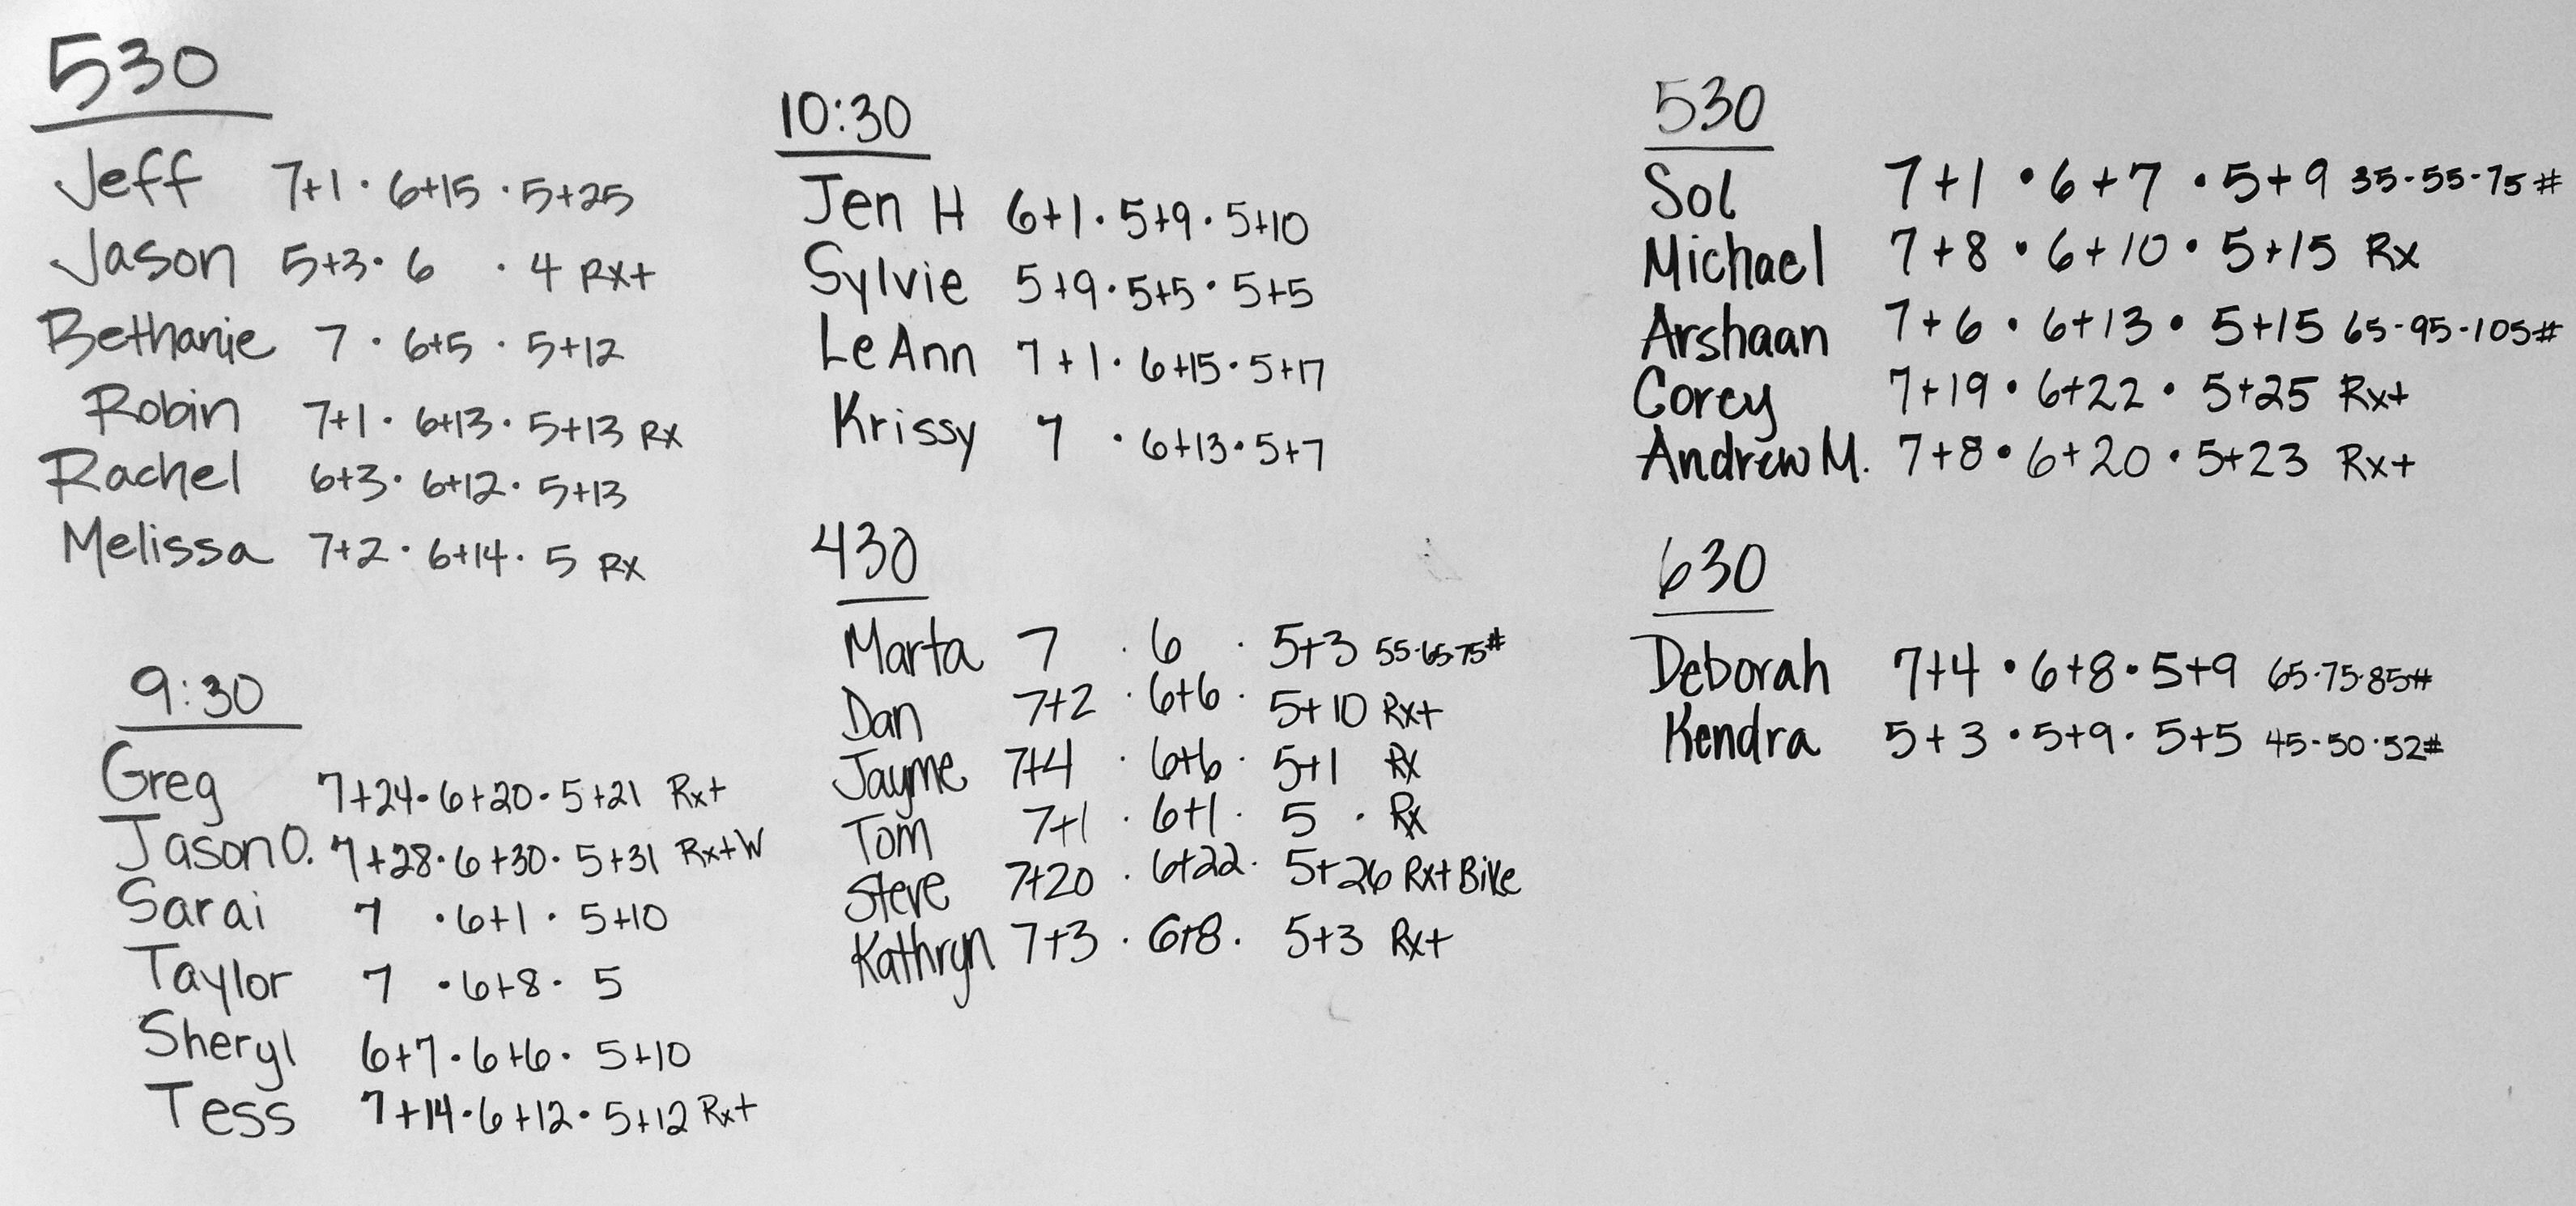 530
Jeff 7+1 · 6+15 · 5+25
Jason 5+3 · 6 · 4 Rx+
Bethanie 7 · 6+5 · 5+12
Robin 7+1 · 6+13 · 5+13 Rx
Rachel 6+3 · 6+12 · 5+13
Melissa 7+2 · 6+14 · 5 Rx
9:30
Greg 7+24 · 6+20 · 5+21 Rx+
Jason O. 7+28 · 6+30 · 5+31 Rx+W
Sarai 7 · 6+1 · 5+10
Taylor 7 · 6+8 · 5
Sheryl 6+7 · 6+6 · 5+10
Tess 7+14 · 6+12 · 5+12 Rx+
10:30
Jen H 6+1 · 5+9 · 5+10
Sylvie 5+9 · 5+5 · 5+5
LeAnn 7+1 · 6+15 · 5+17
Krissy 7 · 6+13 · 5+7
430
Marta 7 · 6 · 5+3 55·65·75#
Dan 7+2 · 6+6 · 5+10 Rx+
Jayme 7+4 · 6+6 · 5+1 Rx
Tom 7+1 · 6+1 · 5 · Rx
Steve 7+20 · 6+22 · 5+26 Rx+ Bike
Kathryn 7+3 · 6+8 · 5+3 Rx+
530
Sol 7+1 · 6+7 · 5+9 35-55-75#
Michael 7+8 · 6+10 · 5+15 Rx
Arshaan 7+6 · 6+13 · 5+15 65-95-105#
Corey 7+19 · 6+22 · 5+25 Rx+
Andrew M. 7+8 · 6+20 · 5+23 Rx+
630
Deborah 7+4 · 6+8 · 5+9 65·75·85#
Kendra 5+3 · 5+9 · 5+5 45-50·52#